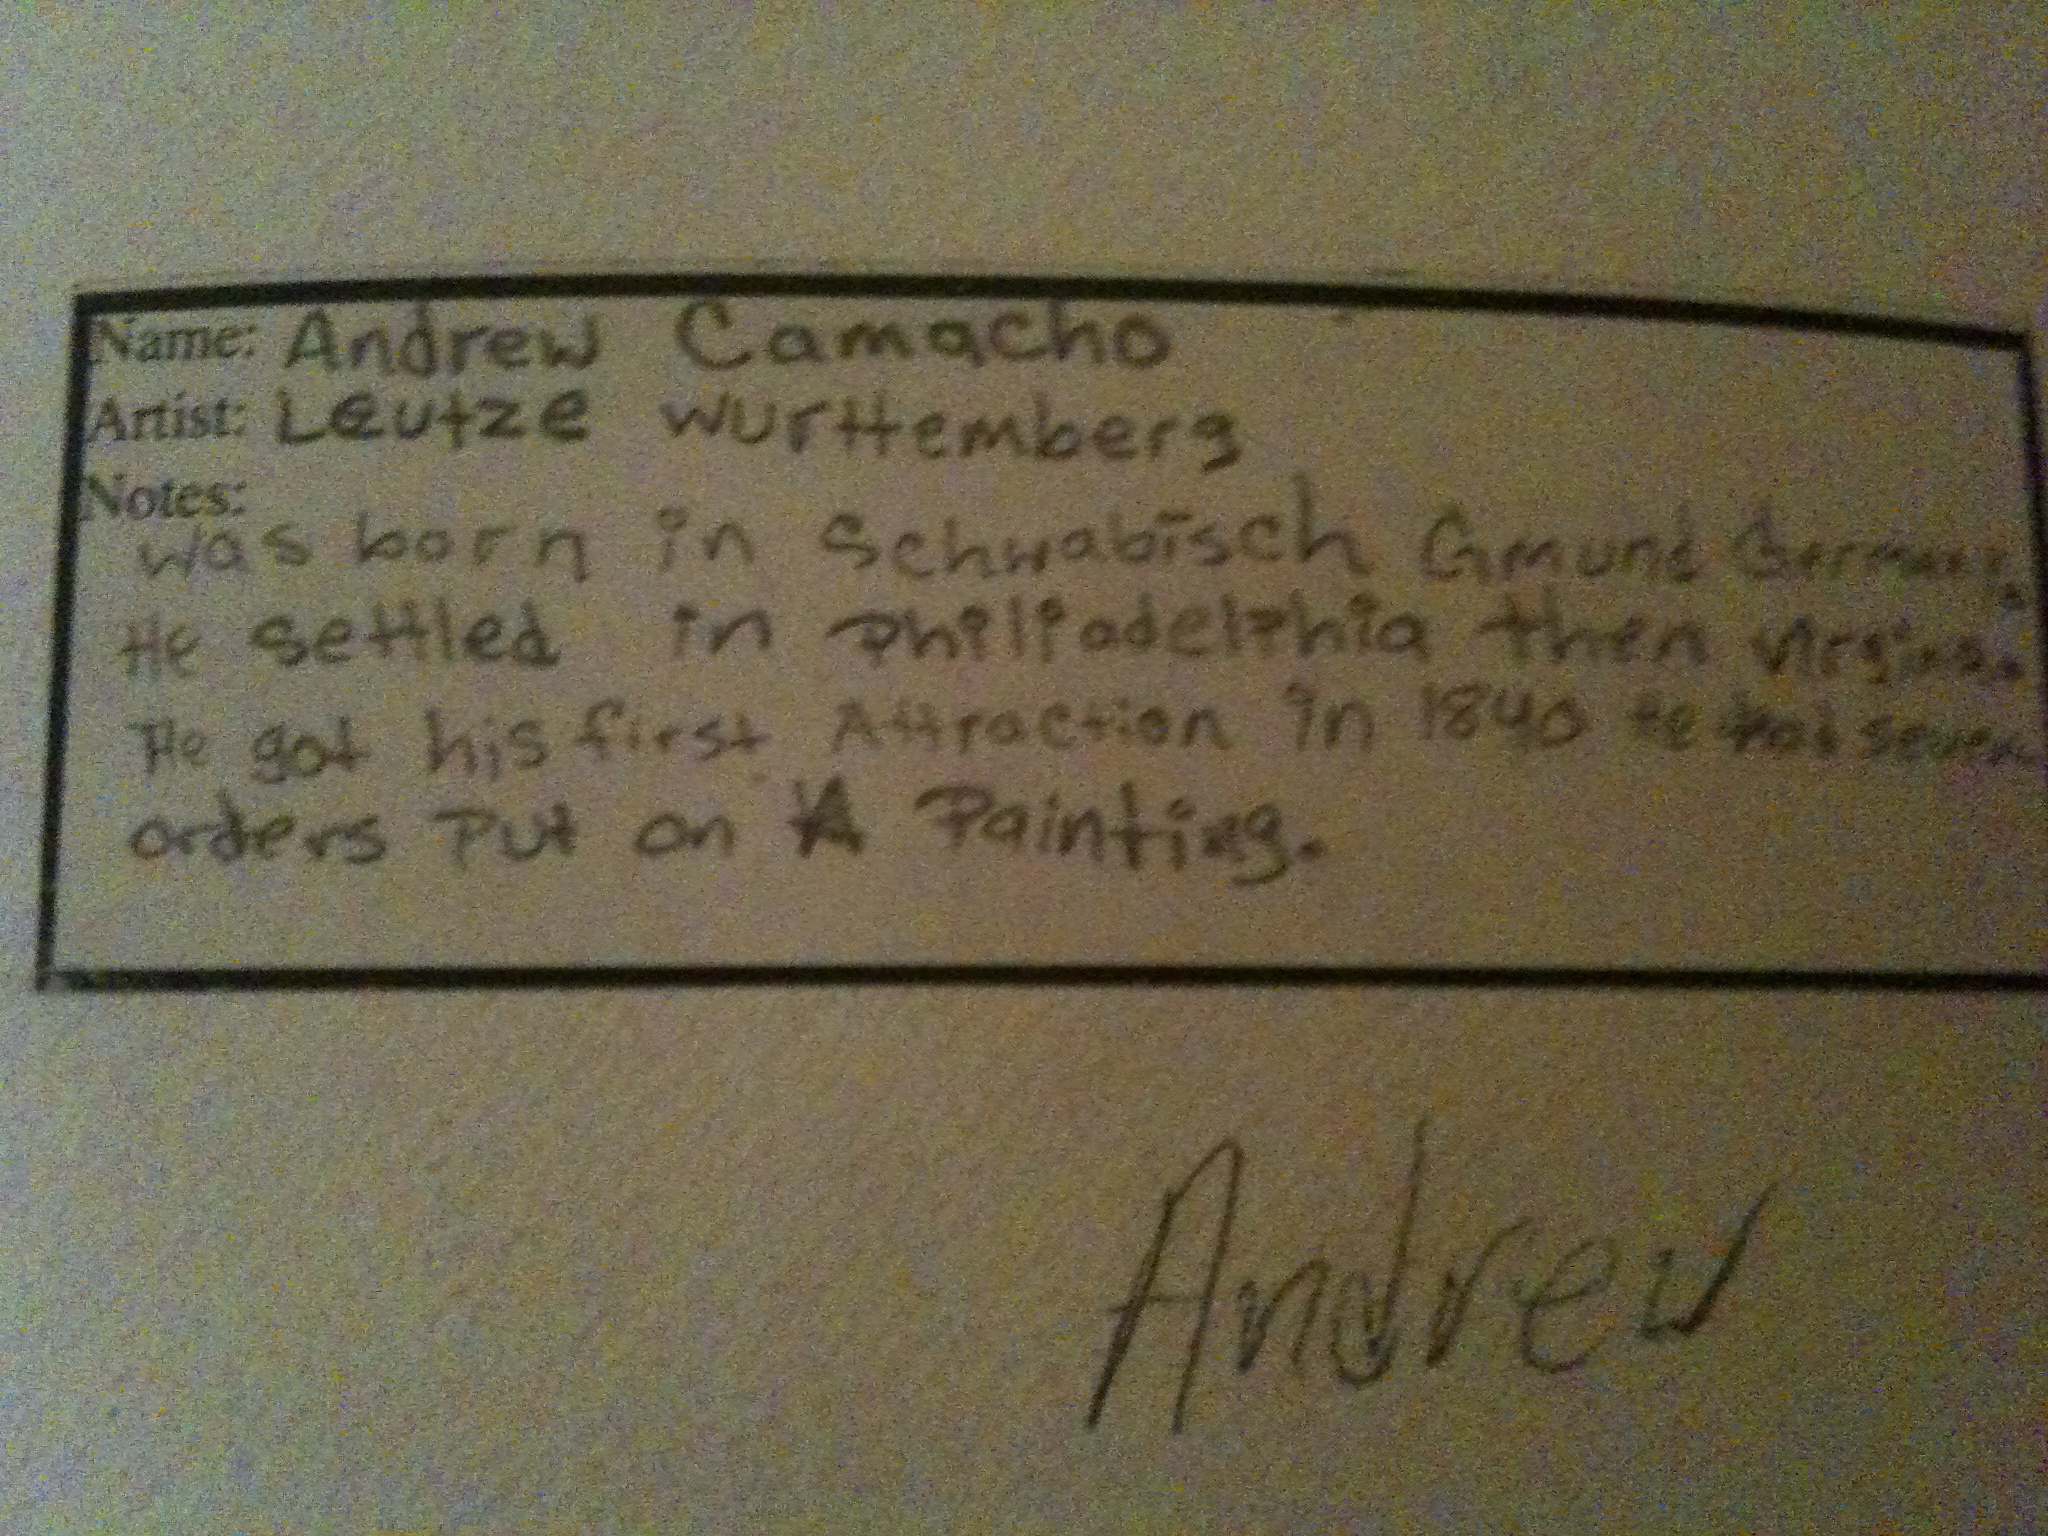 Name: Andrew Camacho
Artist: Leutze Wurttemberg
Notes:
was born in Schwabisch Gmund Germany.
He settled in Philiadelphia then Virginia.
He got his first Attraction in 1840 He had seven
orders Put on A Painting.
Andrew